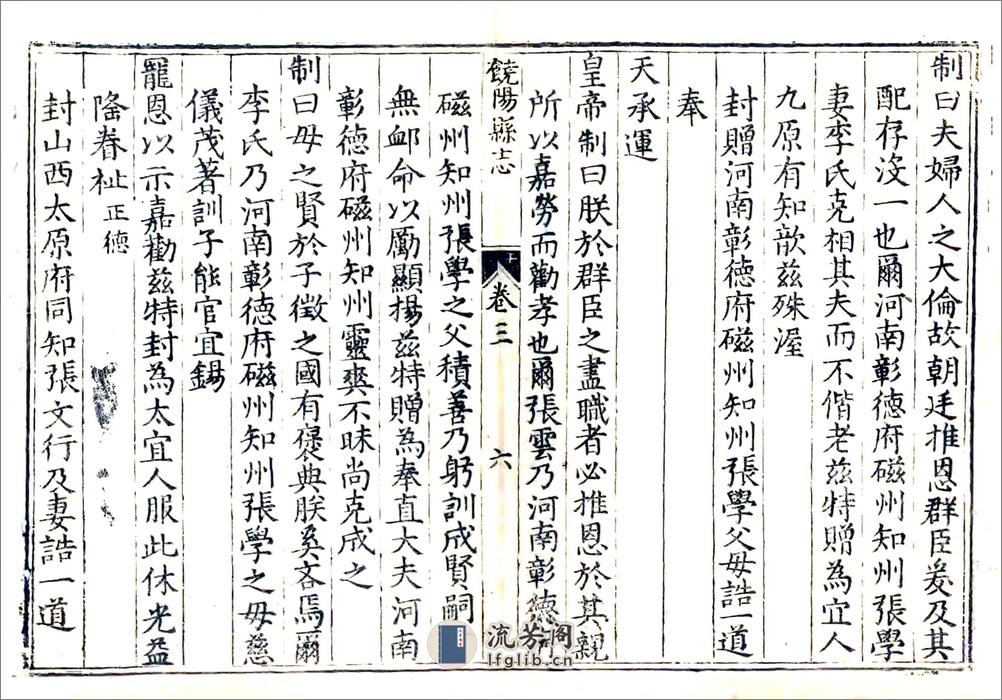 制曰夫婦人之大倫故朝廷推恩群臣爰及其
配存沒一也爾河南彰德府磁州知州張學
妻李氏克相其夫而不偕老茲特贈為宜人
九原有知歆茲殊渥
封贈河南彰德府磁州知州張學父母誥一道
奉
天承運
皇帝制曰朕於群臣之盡職者必推恩於其親
所以嘉勞而勸孝也爾張雲乃河南彰德府
饒陽縣志
卷三
六
磁州知州張學之父積善乃躬訓成賢嗣
無卹命以勵顯揚茲特贈為奉直大夫河南
彰德府磁州知州靈爽不昧尚克成之
制曰母之賢於子徵之國有褒典朕奚吝焉爾
李氏乃河南彰德府磁州知州張學之母慈
儀茂著訓子能官宜錫
寵恩以示嘉勸茲特封為太宜人服此休光益
隆眷祉正德
封山西太原府同知張文行及妻誥一道
流芳閣
lfglib.cn